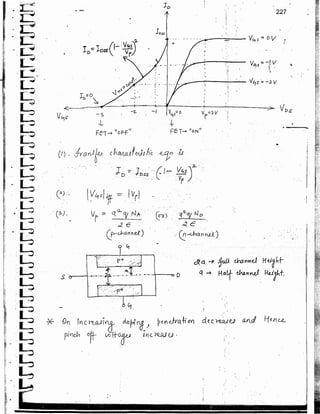 227
I_D
I_DSS
I_D = I_DSS (1 - V_GS/V_P)²
V_GS = 0V
V_GS = -1V
V_GS = -2V
I_D = 0
V_GS
-3
-2
-1
V_GS = 0
V_P = 3V
V_DS
FET → "OFF"
FET → "ON"
(1). Transfer characteristic eqn is
I_D = I_DSS (1 - V_GS/V_P)²
(2). |V_GS|off = |V_P|
(3). V_P = a² q N_A / 2ϵ (or) a² q N_D / 2ϵ
(p-channel) (n-channel)
G
P+
S
2a
a
D
P+
G
2a → full channel Height
a → Half channel Height.
* On Increasing doping, penetration decreases and Hence
pinch off voltages increases.